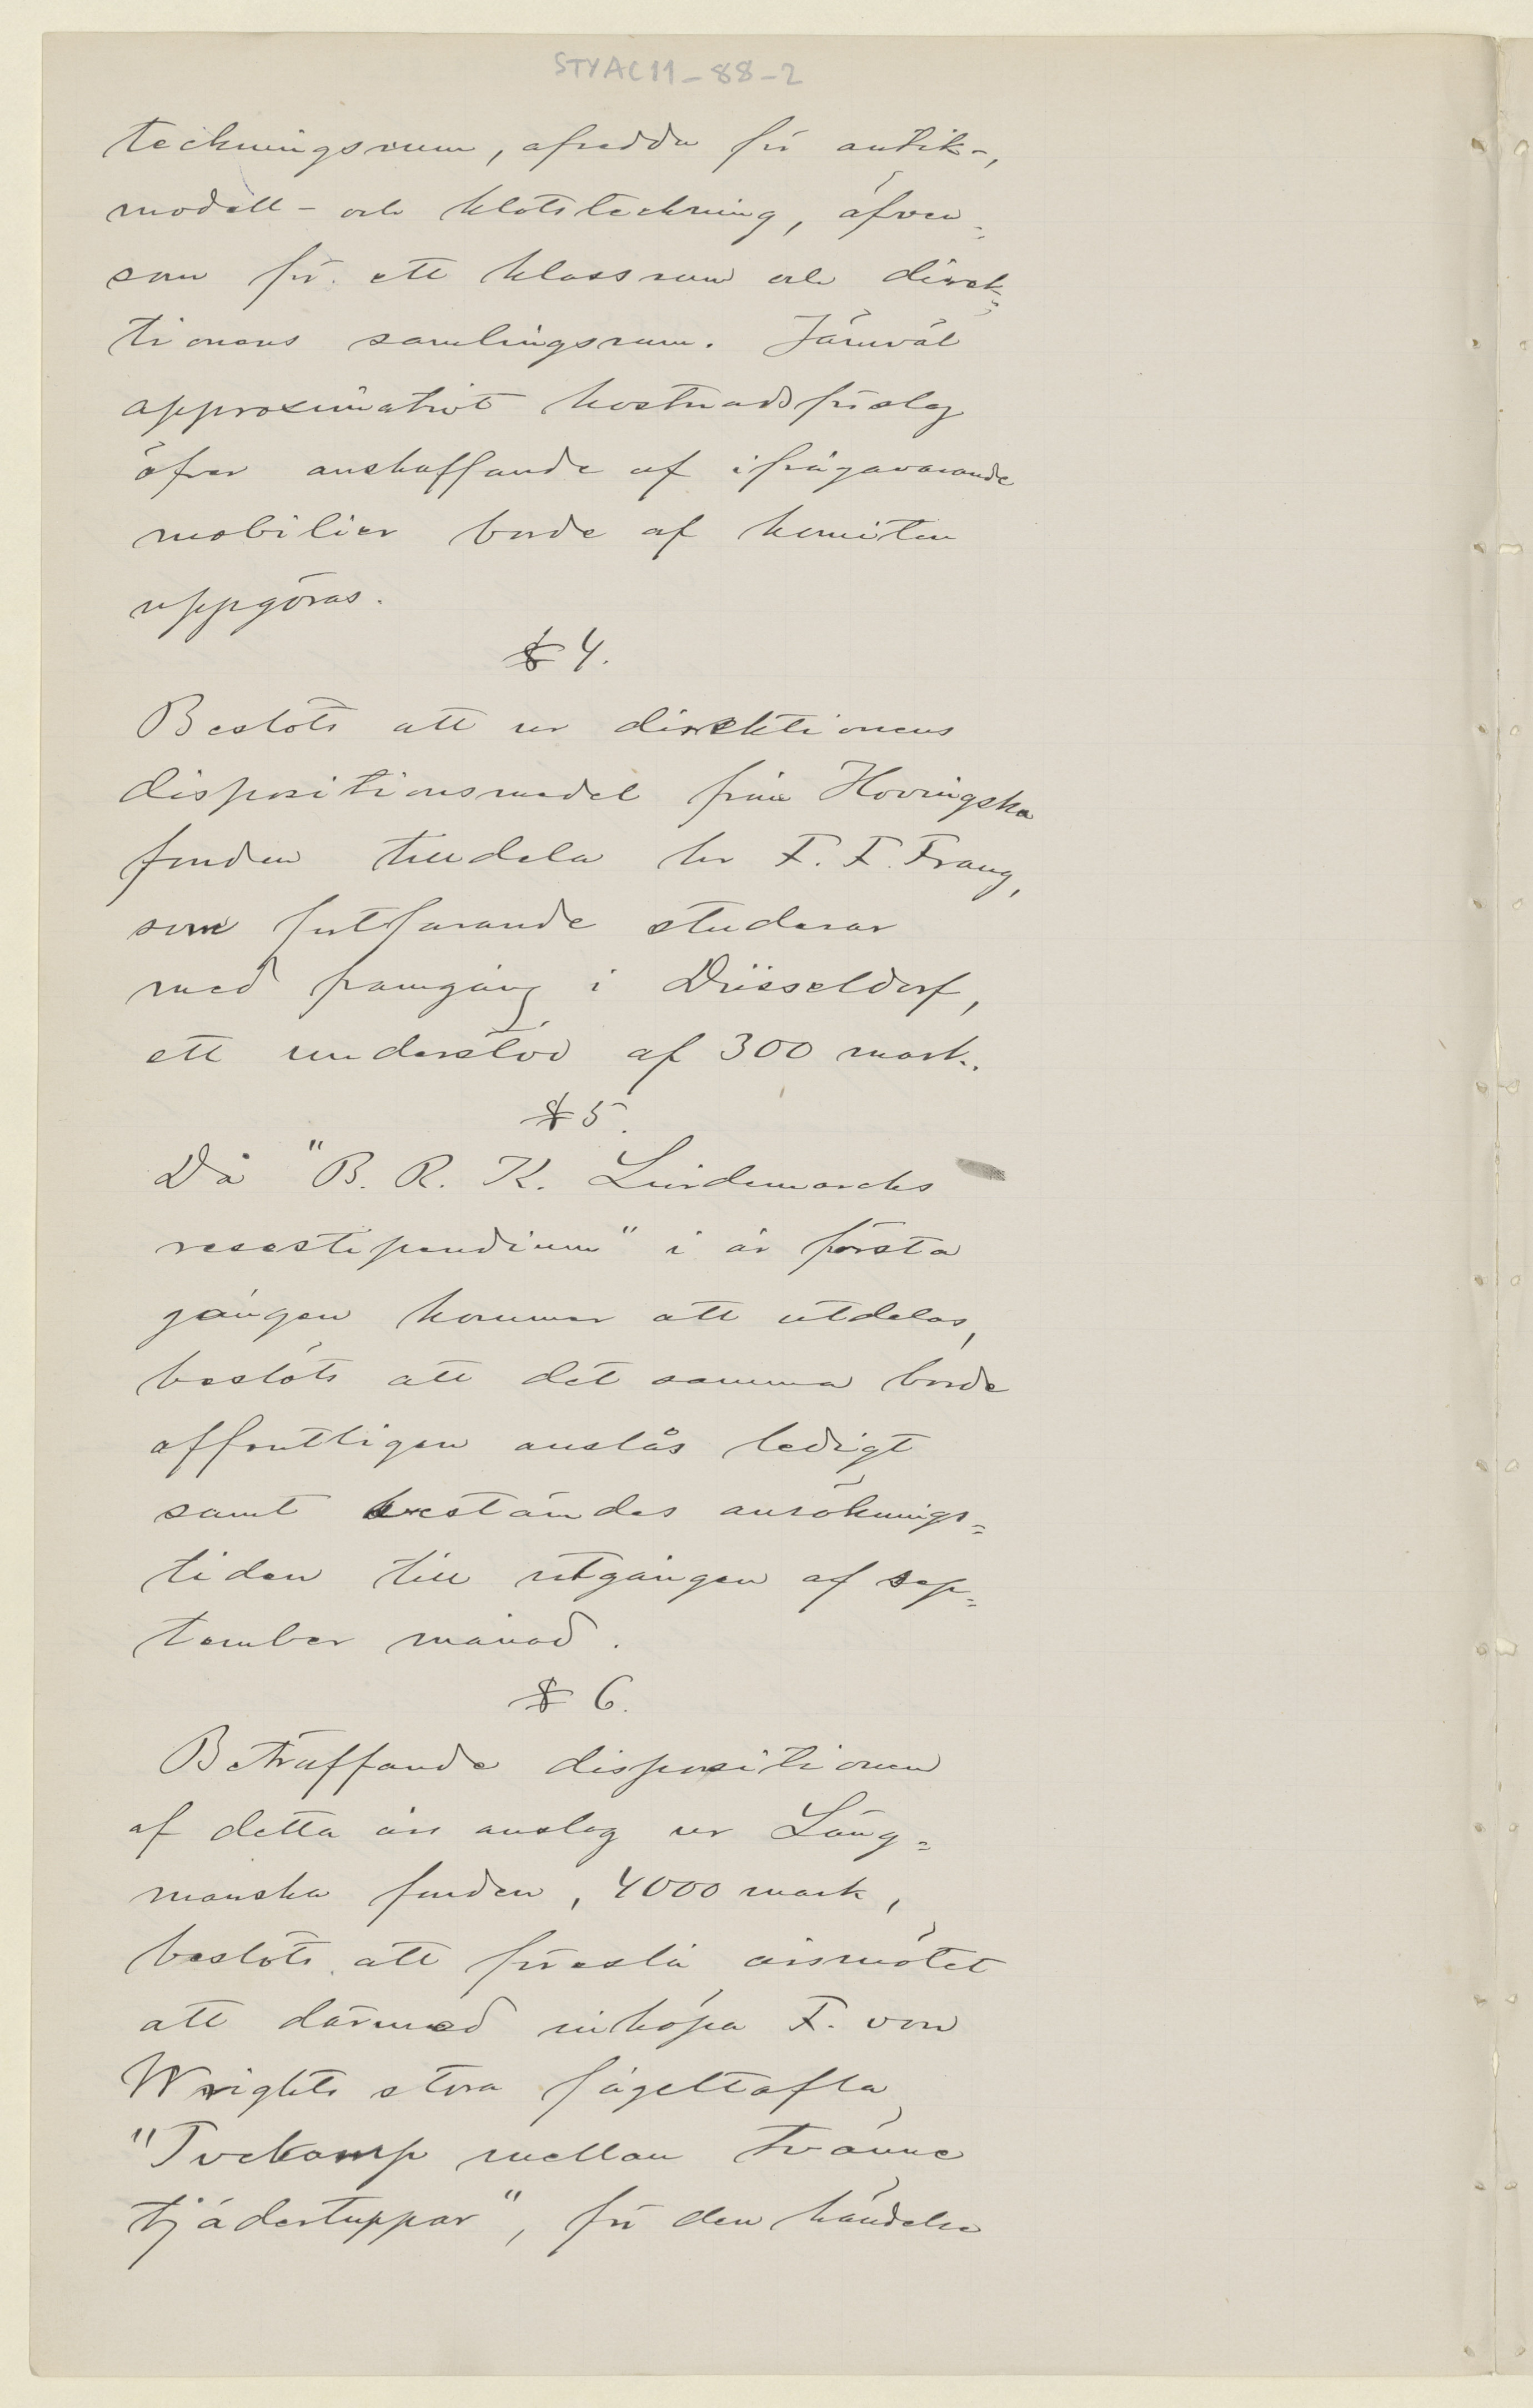 STYAC11-88-2
teckningsrum, afsedda för antik-,
modell- och klotsteckning, äfven-
som för ett klassrum och direk-
tionens samlingsrum. Jämväl
approximativt kostnadsförslag
öfver anskaffande af ifrågavarande
mobilier borde af komiten
uppgöras.
§ 4.
Beslöts att ur direktionens
dispositionsmedel från Hovingska
fonden tilldela hr F. F. Frang,
som fortfarande studerar
med framgång i Düsseldorf,
ett understöd af 300 mark.
§ 5.
Då "B. R. K. Lindemarcks
resestipendium" i år första
gången kommer att utdelas,
beslöts att det samma borde
offentligen anslås ledigt
samt bestämdes ansöknings-
tiden till utgången af sep-
tember månad.
§ 6.
Beträffande dispositionen
af detta års anslag ur Läng-
manska fonden, 4000 mark,
beslöts att föreslå årsmötet
att därmed inköpa F. von
Wrights stora fågeltafla
"Tvekamp mellan tvänne
tjädertuppar", för den händelse